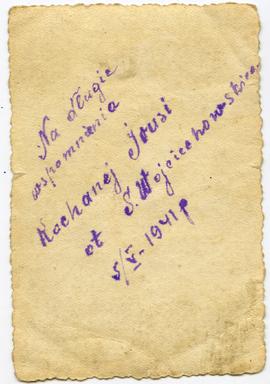 Na długie
wspomnienia
Kochanej Jousi
ot S. Wojciechowskiego
5/V-1941 p